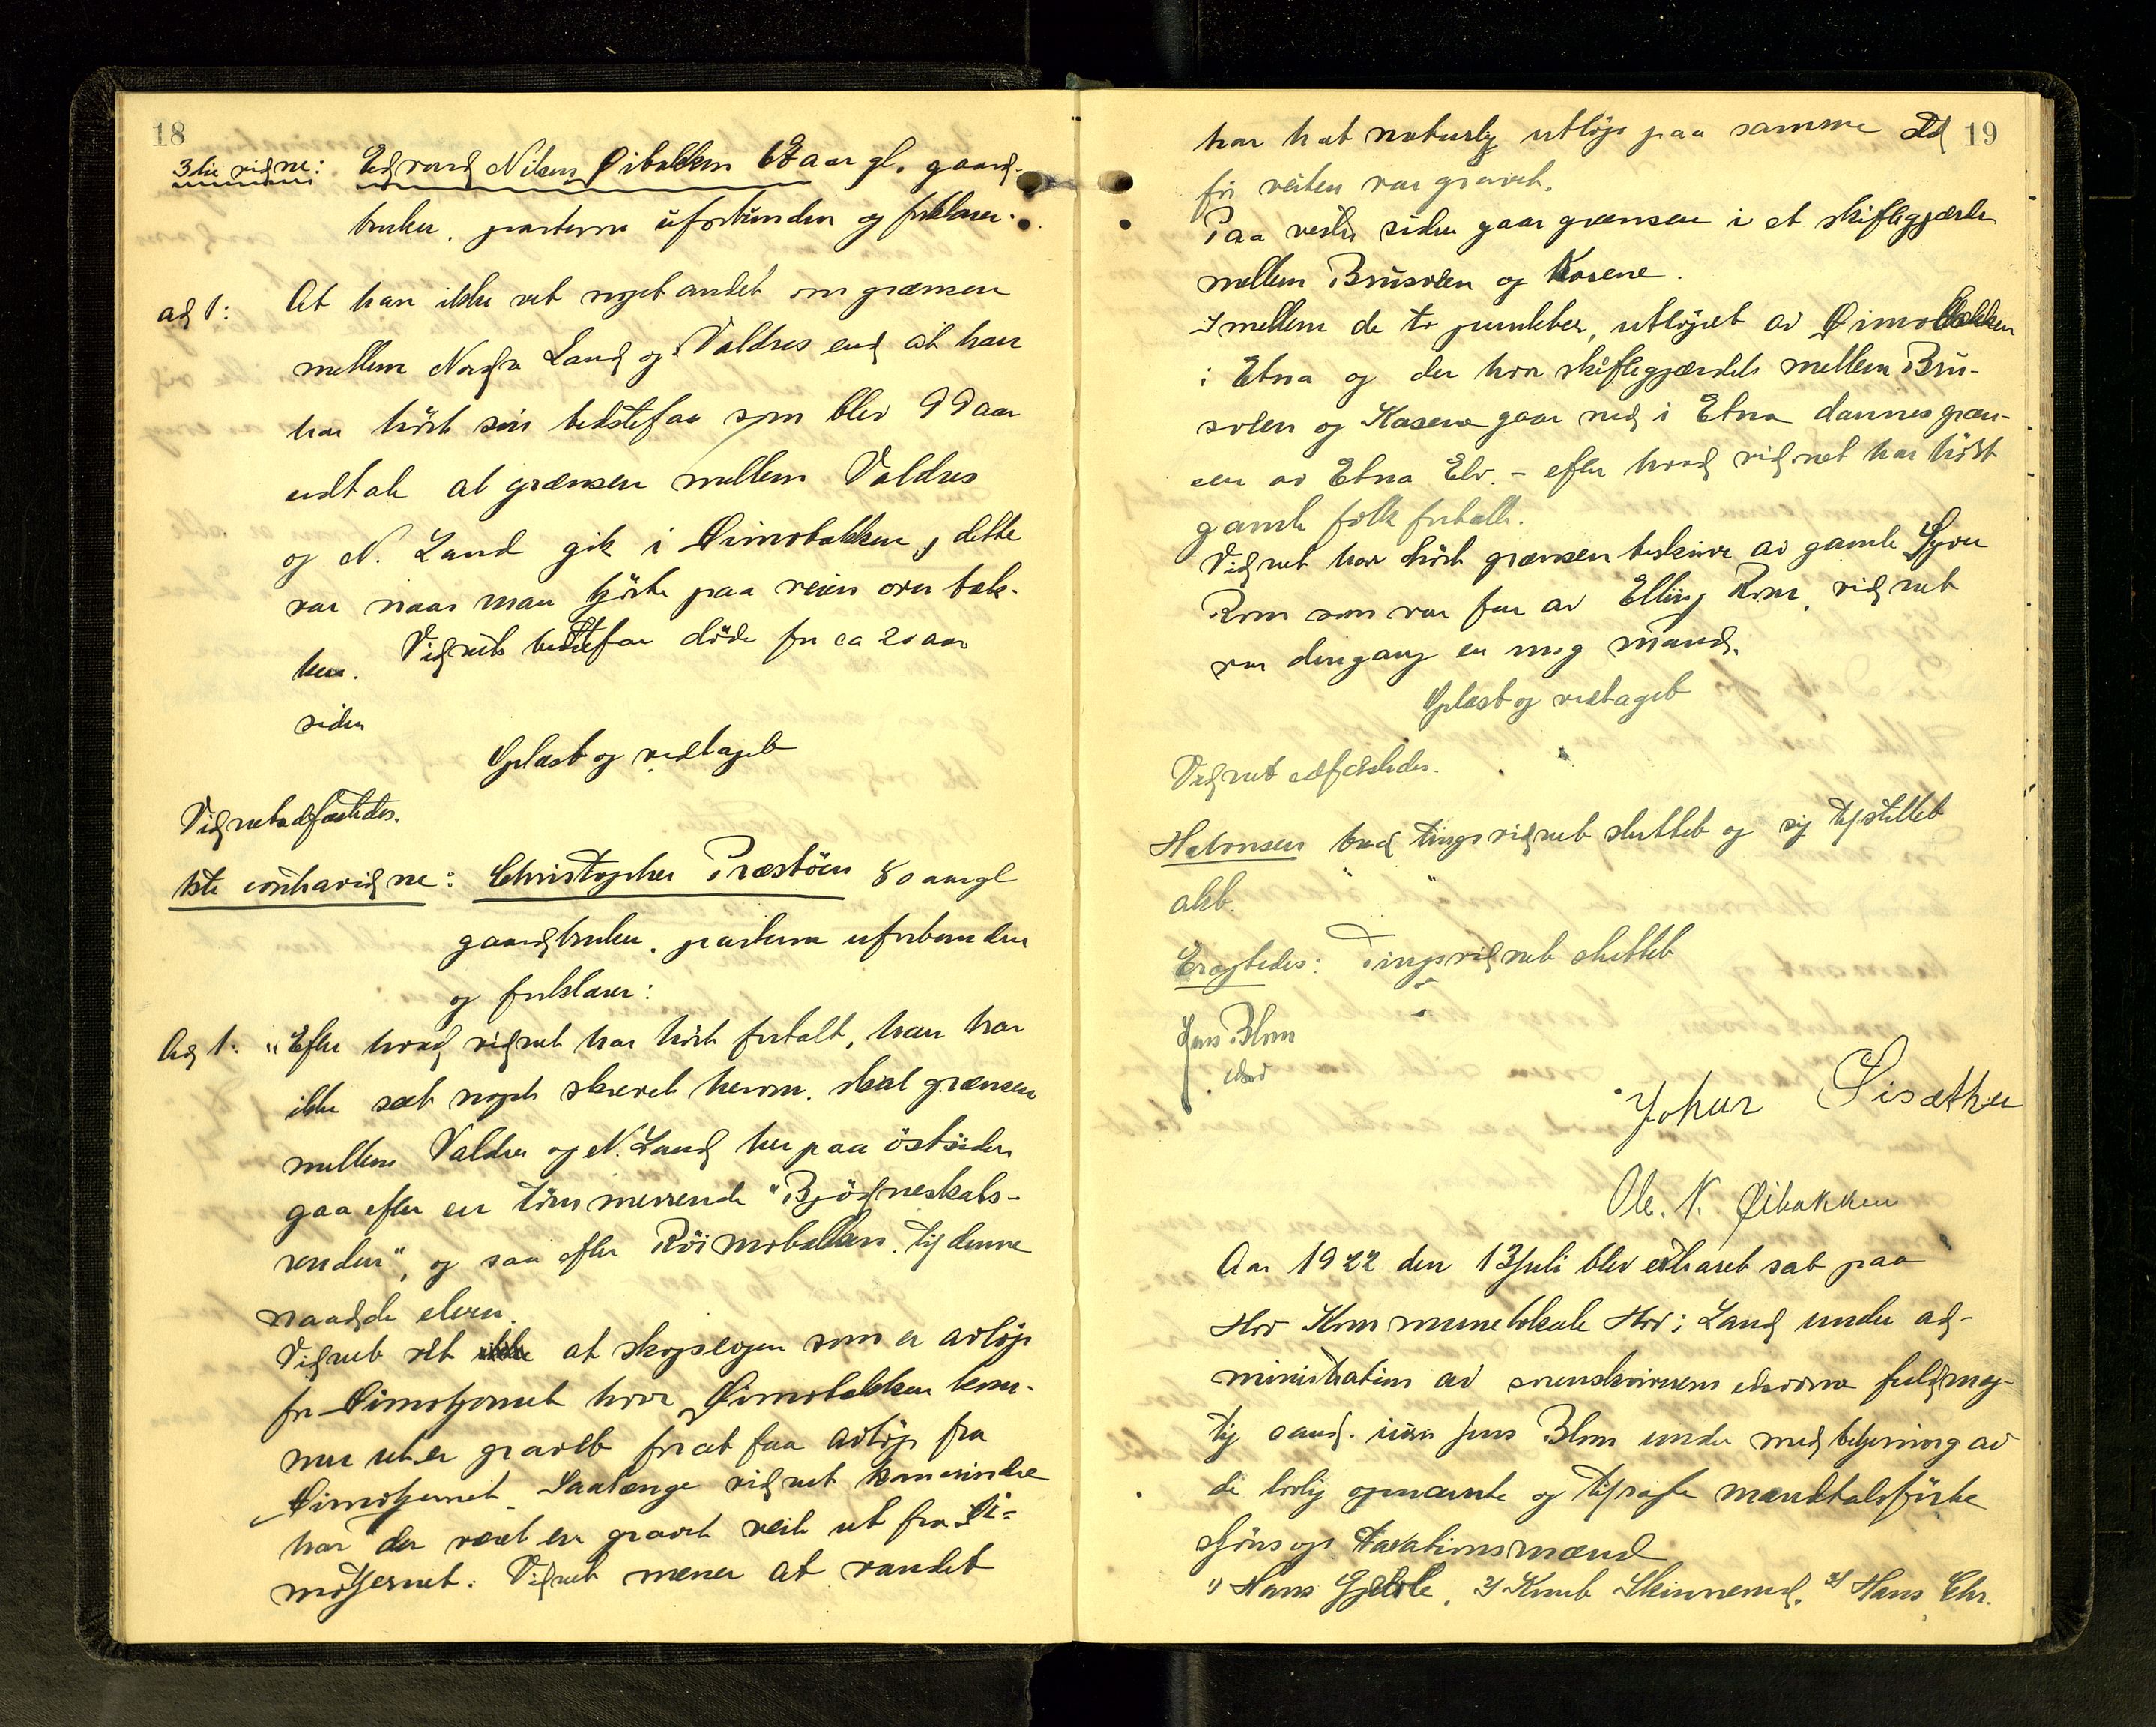 18
3die vidne: Edvard Nilsen Øibakken 68 aar gl. gaard-
bruker. parterne uforbunden og forklarer:
ad 1: At han ikke vet noget andet om grænsen
mellem Nordre Land og Valdres end at han
har hørt sin bedstefar som blev 99 aar
udtale at grænsen mellem Valdres
og N. Land gik i Øimobakken, dette
var naar man kjørte paa veien over bak-
ken. Vidnets bedstefar døde for ca 20 aar
siden
Oplæst og vedtaget
Vidnet edfæstedes.
1ste contravidne: Christopher Præstøen 80 aar gl
gaardbruker. parterne uforbunden
og forklarer:
Ad 1: "Efter hvad vidnet har hørt fortalt, han har
ikke set noget skrevet herom. skal grænsen
mellem Valdres og N. Land her paa østsiden
gaa efter en tømmerrende "Bjødneskals-
renden", og saa efter Röimobakken. til denne
naadde elven.
Vidnet vet ikke at skogselven som er avløp
fra Øimotjernet hvor Øimobakken kom-
mer ut er gravet for at faa avløp fra
Øimotjernet. Saalænge vidnet kan erindre
har der været en gravet veit ut fra Øi-
motjernet. Vidnet mener at vandet
har hat naturlig utløp paa samme sted 19
før veiten var gravet.
Paa vestre siden gaar grænsen i et skiftegjærde
mellem Brusolen og Kasene.
Imellem de to punkter, utløpet av Øimobakken
i Etna og der hvor skiftegjærdet mellem Bru-
solen og Kasene gaar ned i Etna dannes græn-
sen av Etna Elv. - efter hvad vidnet har hørt
gamle folk fortalt.
Vidnet har hørt grænsen beskrive av gamle Syver
Rom som var far av Elling Rom, vidnet
var dengang en ung mand.
Oplæst og vedtaget
Vidnet edfæstedes.
Halvorsen bad tingsvidnet sluttet og sig tilstillet
akt.
Eragtedes: Tingsvidnet sluttet
Jens Blom
edsv
Johan Lisæther
Ole. N. Øibakken
Aar 1922 den 13 Juli blev extraret sat paa
Hov Kommunelokale Hov i Land under ad-
ministration av sorenskriverens edsvorne fuldmæg-
tig cand. jur. Jens Blom under med betjening av
de lovlig opnævnte og tilsagte mandtalsførte
skjøns og taxationsmænd
1) Hans Gjelsle, 2) Knut Skinnerud. 3) Hans Chr.